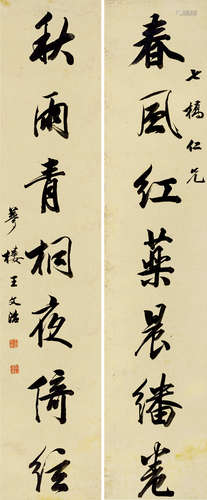 春風紅藥晨繙卷
七橋仁兄
秋雨青桐夜倚絃
夢樓王文治